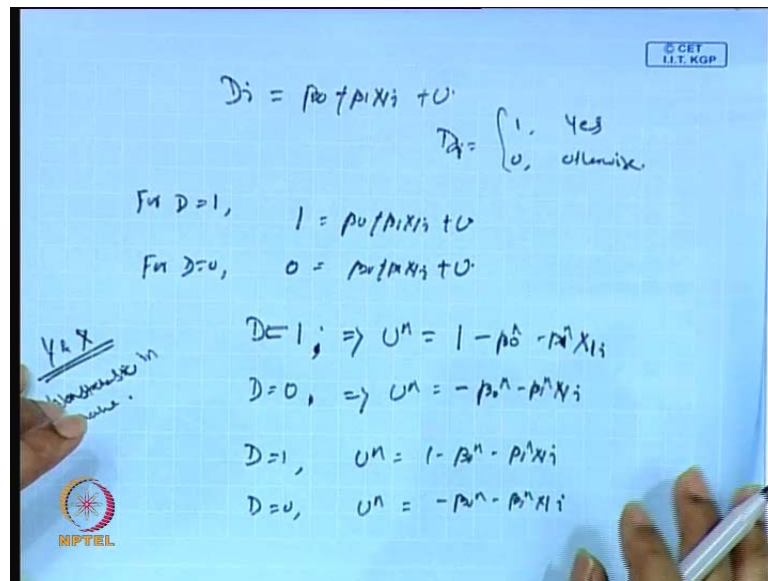 © CET
I.I.T. KGP
Di = β0 + β1X1i + U
Di = { 1, Yes
0, otherwise.
For D = 1, 1 = β0 + β1X1i + U
For D = 0, 0 = β0 + β1X1i + U
D = 1, => U^ = 1 - β0^ - β1^ X1i
Y & X
D = 0, => U^ = - β0^ - β1^ X1i
in
D = 1, U^ = 1 - β0^ - β1^ X1i
D = 0, U^ = - β0^ - β1^ X1i
NPTEL